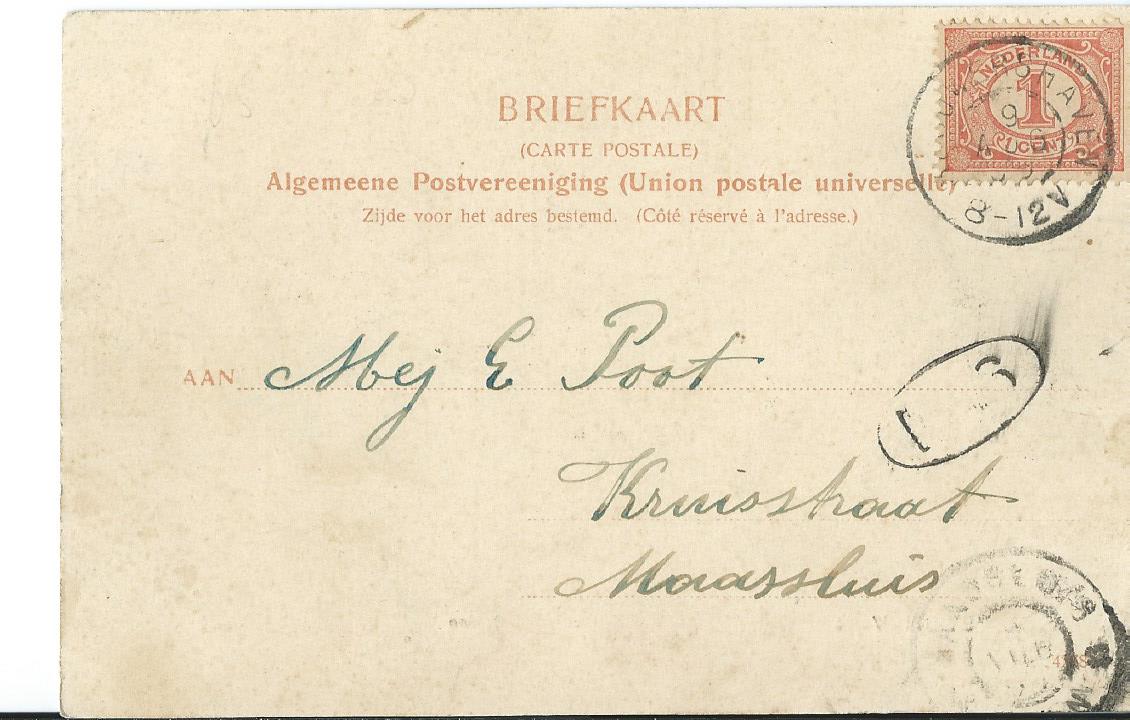 BRIEFKAART
(CARTE POSTALE)
Algemeene Postvereeniging (Union postale universelle)
Zijde voor het adres bestemd. (Côté réservé à l'adresse.)
NEDERLAND
1
CENT
HAVEN
8-12V
AAN Mej E Poot
Kruisstraat
Maassluis